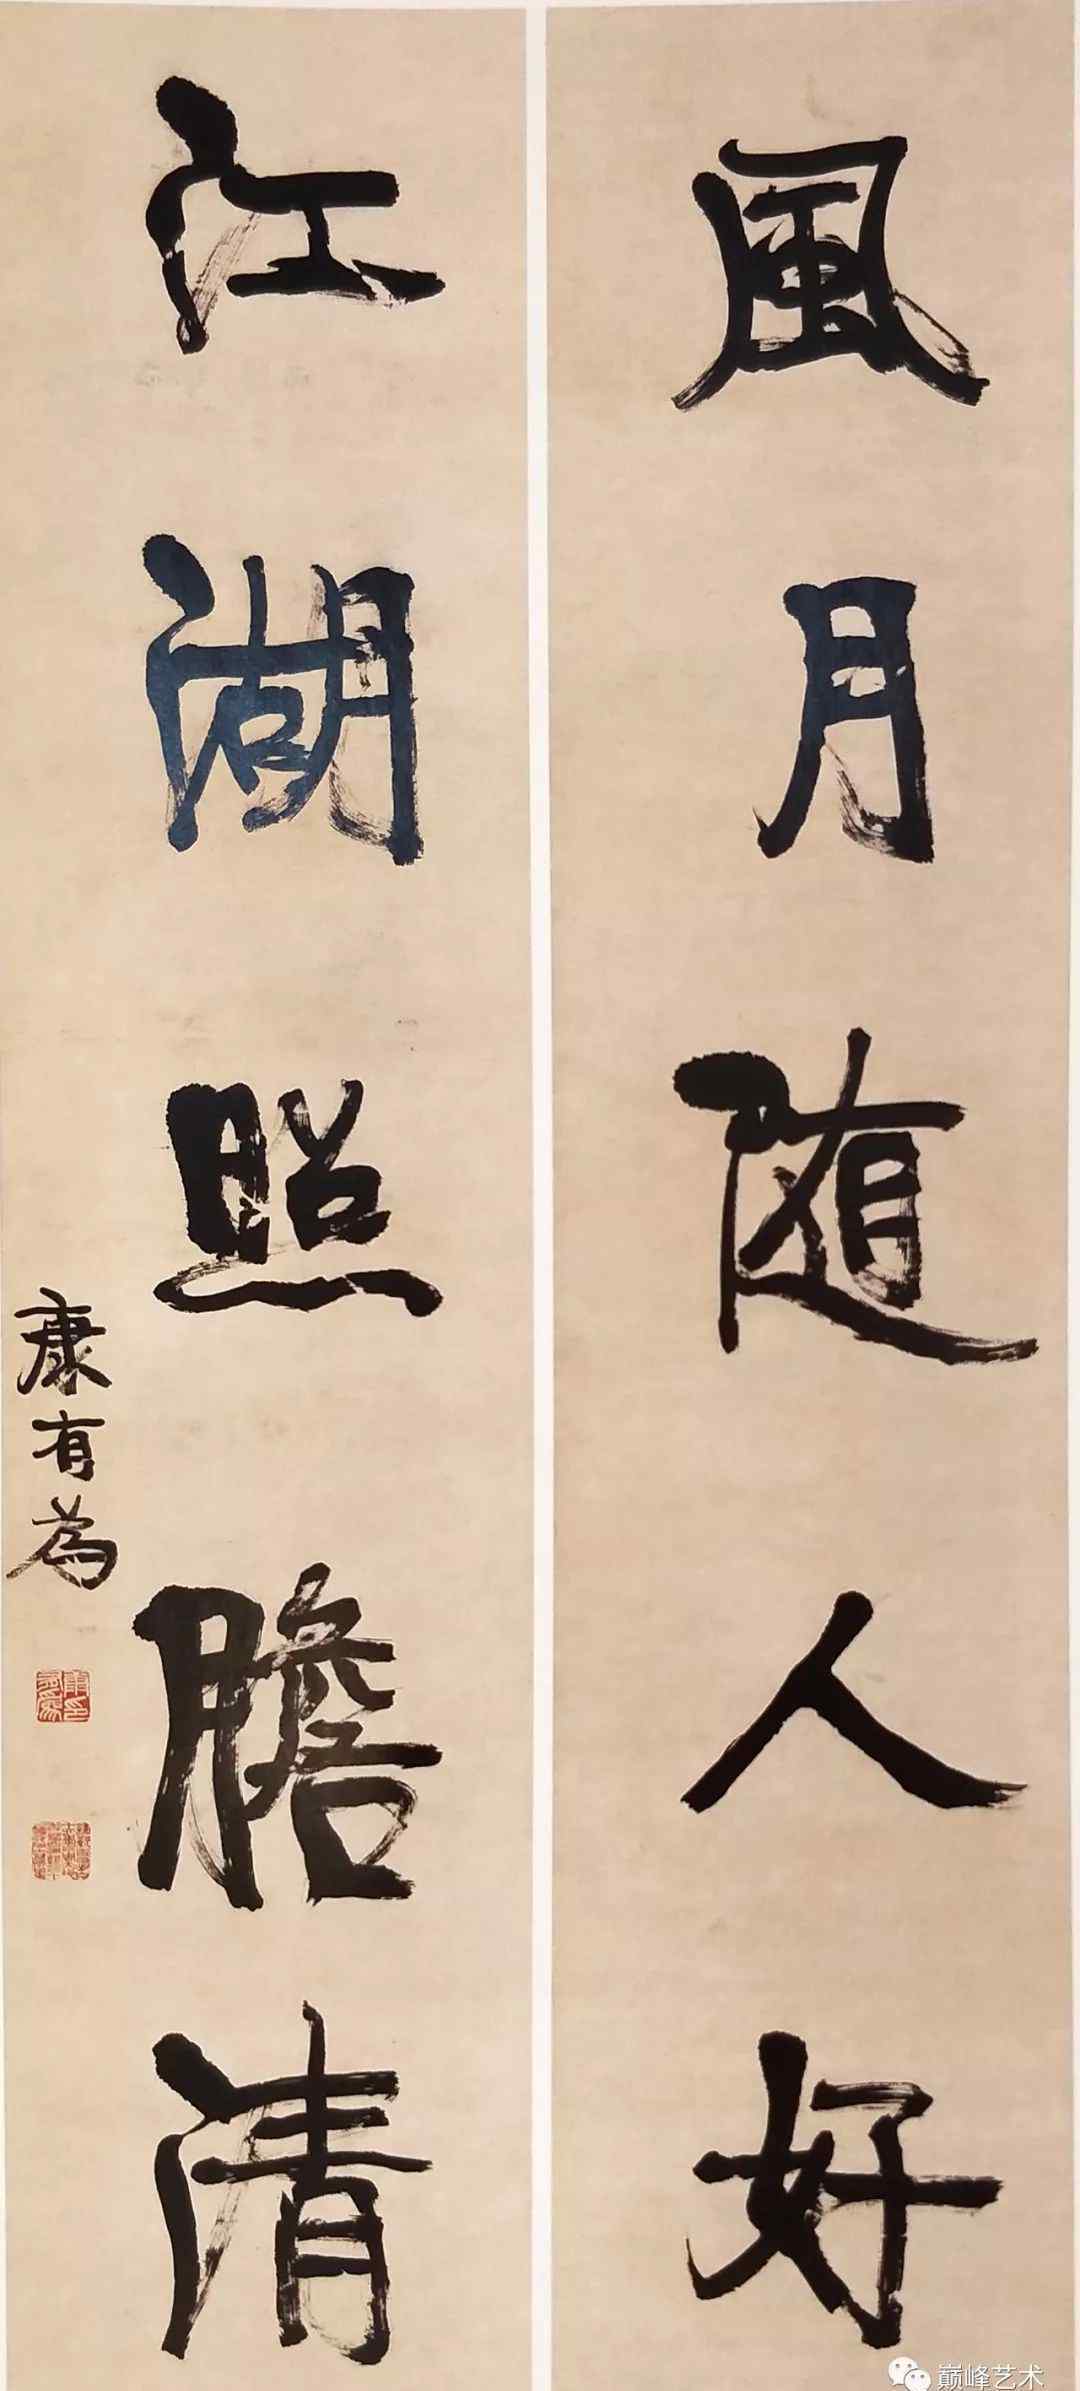 風月随人好
江湖照膽清
康有為
巅峰艺术